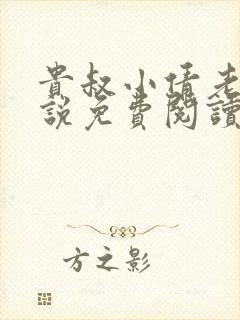 貴叔小倩老
說免費閱讀
方之影